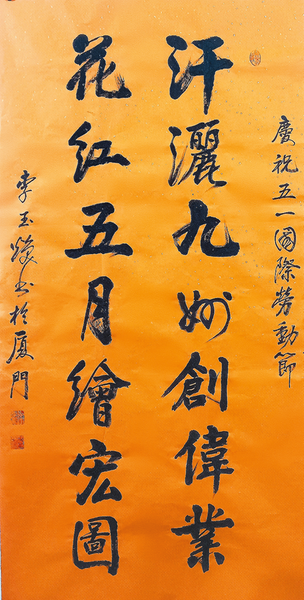 慶祝五一國際勞動節
汗灑九州創偉業
花紅五月繪宏圖
李玉書於廈門